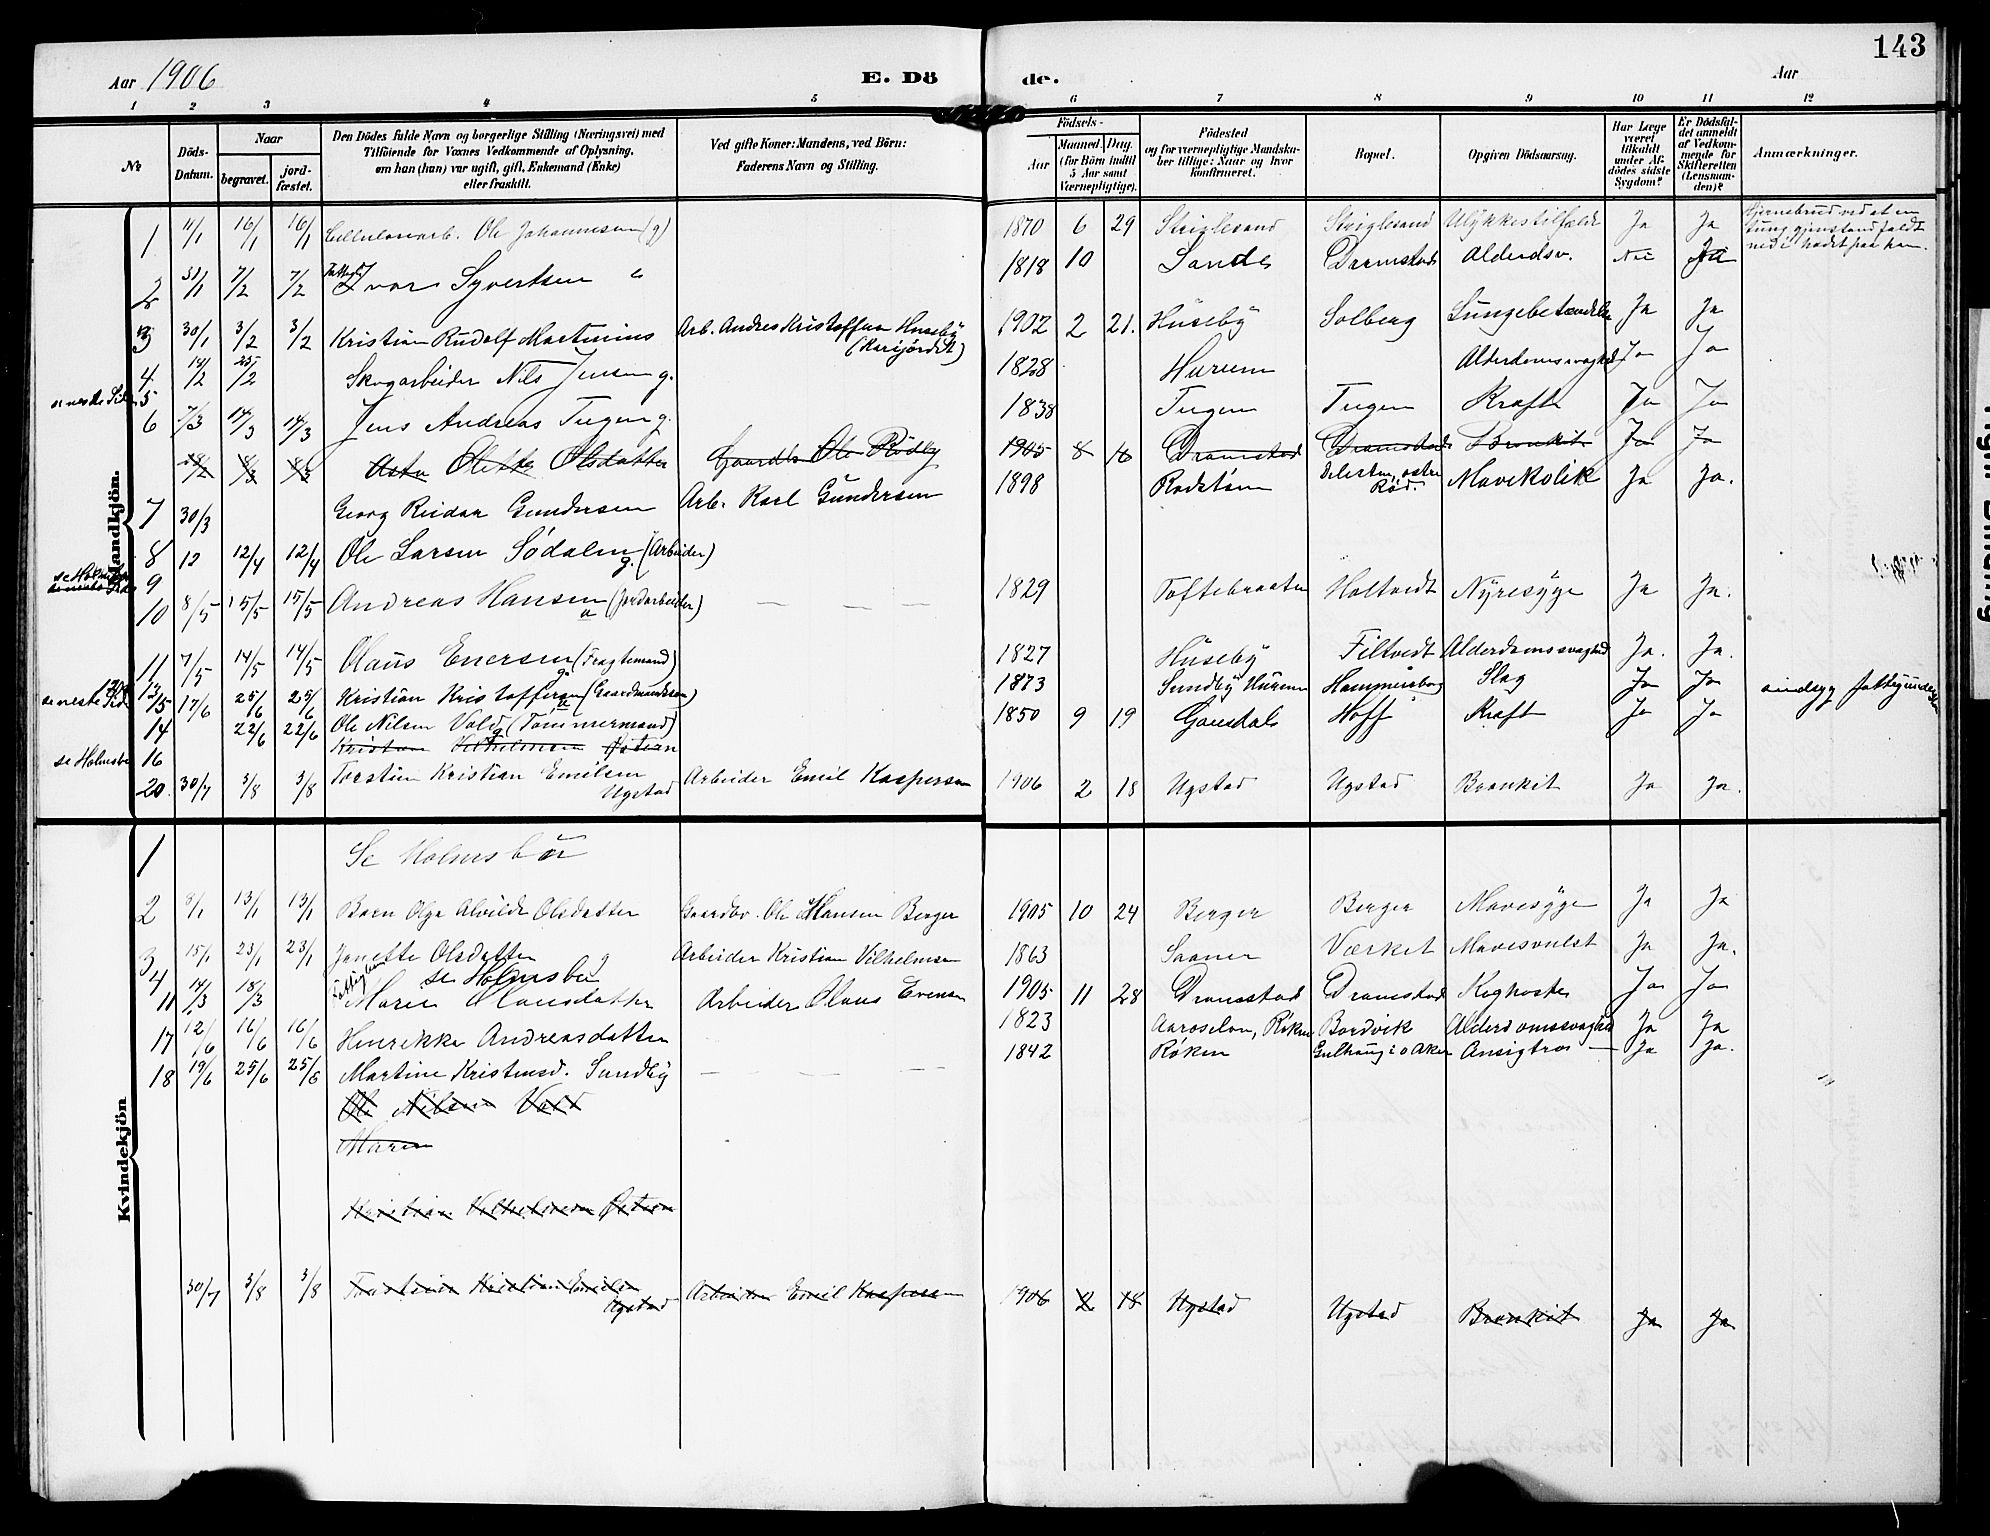 143
Aar 1906 E. Dö de. Aar
1 2 3 4 5 6 7 8 9 10 11 12
No
Döds-Datum.
Naar
begravet.
jord-fæstet.
Den Dödes fulde Navn og borgerlige Stilling (Næringsvei) med
Tilföiende for Voxnes Vedkommende af Oplysning,
om han (hun) var ugift, gift, Enkemand (Enke)
eller fraskilt.
Ved gifte Koner: Mandens, ved Börn:
Faderens Navn og Stilling.
Födsels-
Aar
Maaned. Dag.
(for Börn indtil
5 Aar samt
Værnepligtige).
Födested
og for værnepligtige Mandska-
ber tillige: Naar og hvor
konfirmeret.
Bopæl.
Opgiven Dödsaarsag.
Har Læge
været
tilkaldt
under Af-
dödes sidste
Sygdom?
Er Dödsfal-
det anmeldt
af Vedkom-
mende for
Skifteretten
(Lensman-
den)?
Anmærkninger.
Mandkjön.
1 11/1 16/1 16/1 Cellulosearb. Ole Johannesen (g) 1870 6 29 Striglesand Striglesand Ulykkestilfælde Ja Ja Hjernebrud ved at en
tung gjenstand faldt
ned i hodet paa ham.
2 31/1 7/2 7/2 Ivar Syvertsen 1818 10 Sande Dramstad Alderdsv. Nei Ja
3 30/1 3/2 3/2 Kristian Rudolf Martinius Arb. Andres Kristoffersen Huseby 1902 2 21. Huseby Solberg Lungebetændelse Ja Ja
4 14/2 25/2 Skogarbeider Nils Jensen g. 1828 Hurum Alderdomssvaghed Ja Ja
se neste Side 5
6 7/3 14/3 14/3 Jens Andreas Tugen g. 1838 Tugen Tugen Kræft Ja Ja
8/3 8/3 Asta Olette Olsdatter Gaardbr Ole Rödby 1905 8 Dramstad Dramstad Bronkit Ja Ja
7 30/3 Georg Reidar Gundersen Arb. Karl Gundersen 1898 Rødtom østre
Rød. Mavekolik Ja Ja.
8 12 12/4 12/4 Ole Larsen Södalen g. (Arbeider)
9
10 8/5 15/5 15/5 Andreas Hansen (Jordarbeider) — — 1829 Toftebraaten Holtvedt Nyresyge Ja Ja.
11 7/5 14/5 14/5 Olaus Enersen (Fragtemand) g. 1827 Huseby Filtvedt Alderdomssvaghed Ja. Ja.
se neste Side 17/6 25/6 25/6 Kristian Kristoffersen (Gaardmandssøn) 1873 Sundby Hurum Hammersborg Slag Ja Ja sindsyg
14 22/6 22/6 Ole Nilsen Vold g (Tømmermand) 1850 9 19 Gausdal Hoff Kræft Ja Ja
se Holmsbo 16 Kristian Vilhelmsen
20. 30/7 3/8 3/8 Torstein Kristian Emilsen
Ugstad Arbeider Emil Kaspersen 1906 2 18 Ugstad Ugstad Bronkit Ja Ja.
Kvindekjön
1 Se Holmsbu
2 8/1 13/1 13/1 Barn Olga Alvilde Olsdatter Gaardbr. Ole Hansen Berger 1905 10 24 Berger Berger Mavesyge Ja Ja
3 15/1 23/1 23/1 Janette Olsdatter g Arbeider Kristian Vilhelmsen 1863 Saaner Værket Mavesvulst Ja Ja.
4 se Holmsbu
11 14/3 18/3 Maren Arbeider Olaus Evensen 1905 11 28 Dramstad Dramstad Kighoste Ja Ja
17 12/6 16/6 16/6 Henrikke Andreasdatter 1823 Røken Bordvik Alderdomssvaghed Ja Ja
18 19/6 25/6 25/6 Martine Kristensd. Sundby — — — 1842 Røken i o Aker — Ja Ja.
Ole Nilsen Vold
Maren
Kristian Vilhelmsen
30/7 3/8 3/8 Torstein Kristian Emilsen
Ugstad Arbeider Emil Kaspersen 1906 2 18 Ugstad Ugstad Bronkit Ja Ja